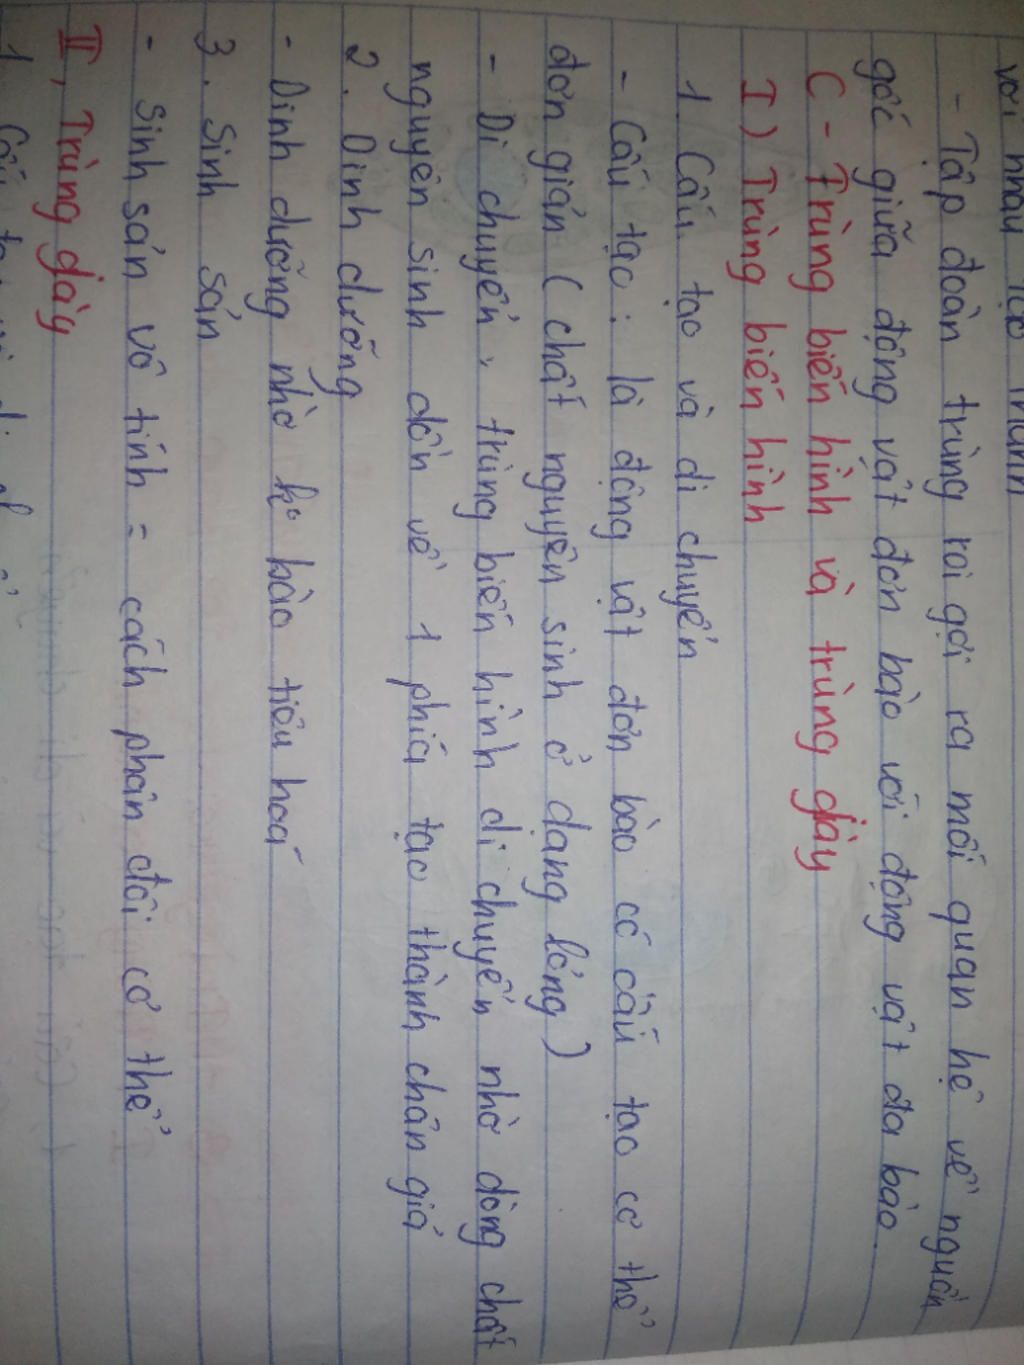 với nhau tạo thành
- Tập đoàn trùng roi gợi ra mối quan hệ về nguồn
gốc giữa động vật đơn bào với động vật đa bào.
C - Trùng biến hình và trùng giày
I) Trùng biến hình
1. Cấu tạo và di chuyển
- Cấu tạo: là động vật đơn bào có cấu tạo cơ thể
đơn giản (chất nguyên sinh ở dạng lỏng)
- Di chuyển: trùng biến hình di chuyển nhờ dòng chất
nguyên sinh dồn về 1 phía tạo thành chân giả
2. Dinh dưỡng
- Dinh dưỡng nhờ ko bào tiêu hoá
3. Sinh sản
- Sinh sản vô tính = cách phân đôi cơ thể
II, Trùng giày
1 Cấu tạo và di